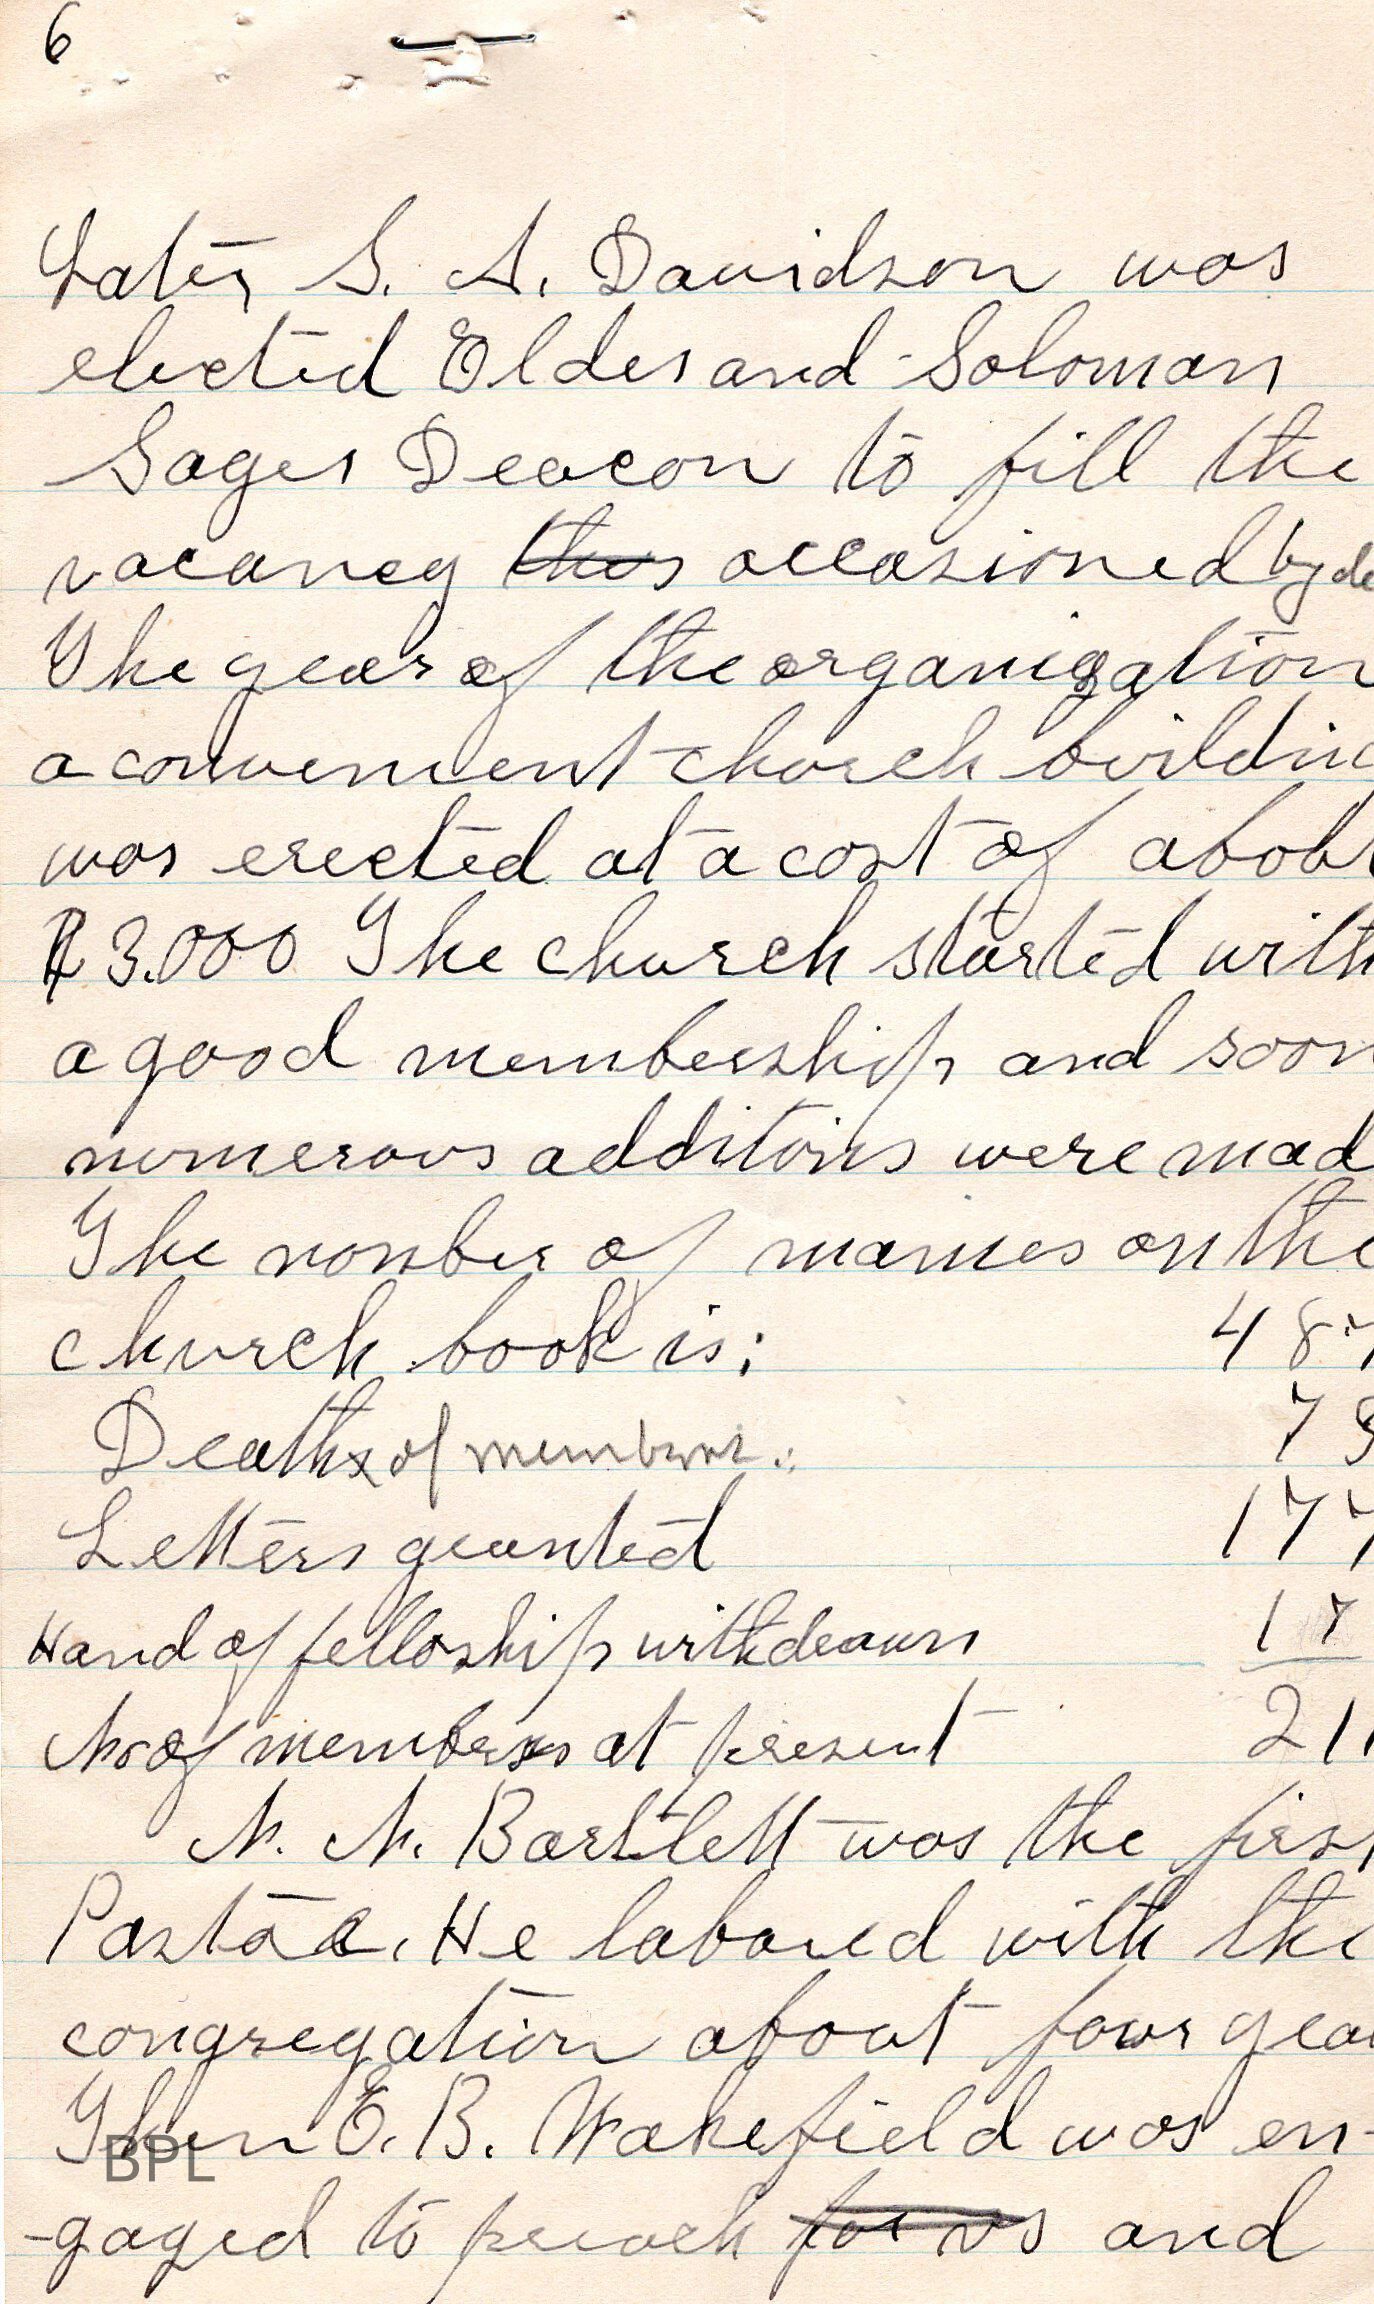 6
Later, S. A. Davidson was
elected Elder and Soloman
Sager Deacon to fill the
vacancy thus occasioned by de
The year of the organization
a convenient church buildin
was erected at a cost of about
$3.000 The church started with
a good membership and soon
numerous additoins were mad
The nomber of names on the
church book is: 487
Deaths of members: 73
Letters granted 177
Hand of felloship withdrawn 17
No of members at present 211
N. N. Bartlett was the first
Pastor. He labored with the
congregation about four yea
Then E. B. Wakefield was en-
-gaged to preach for us and
BPL